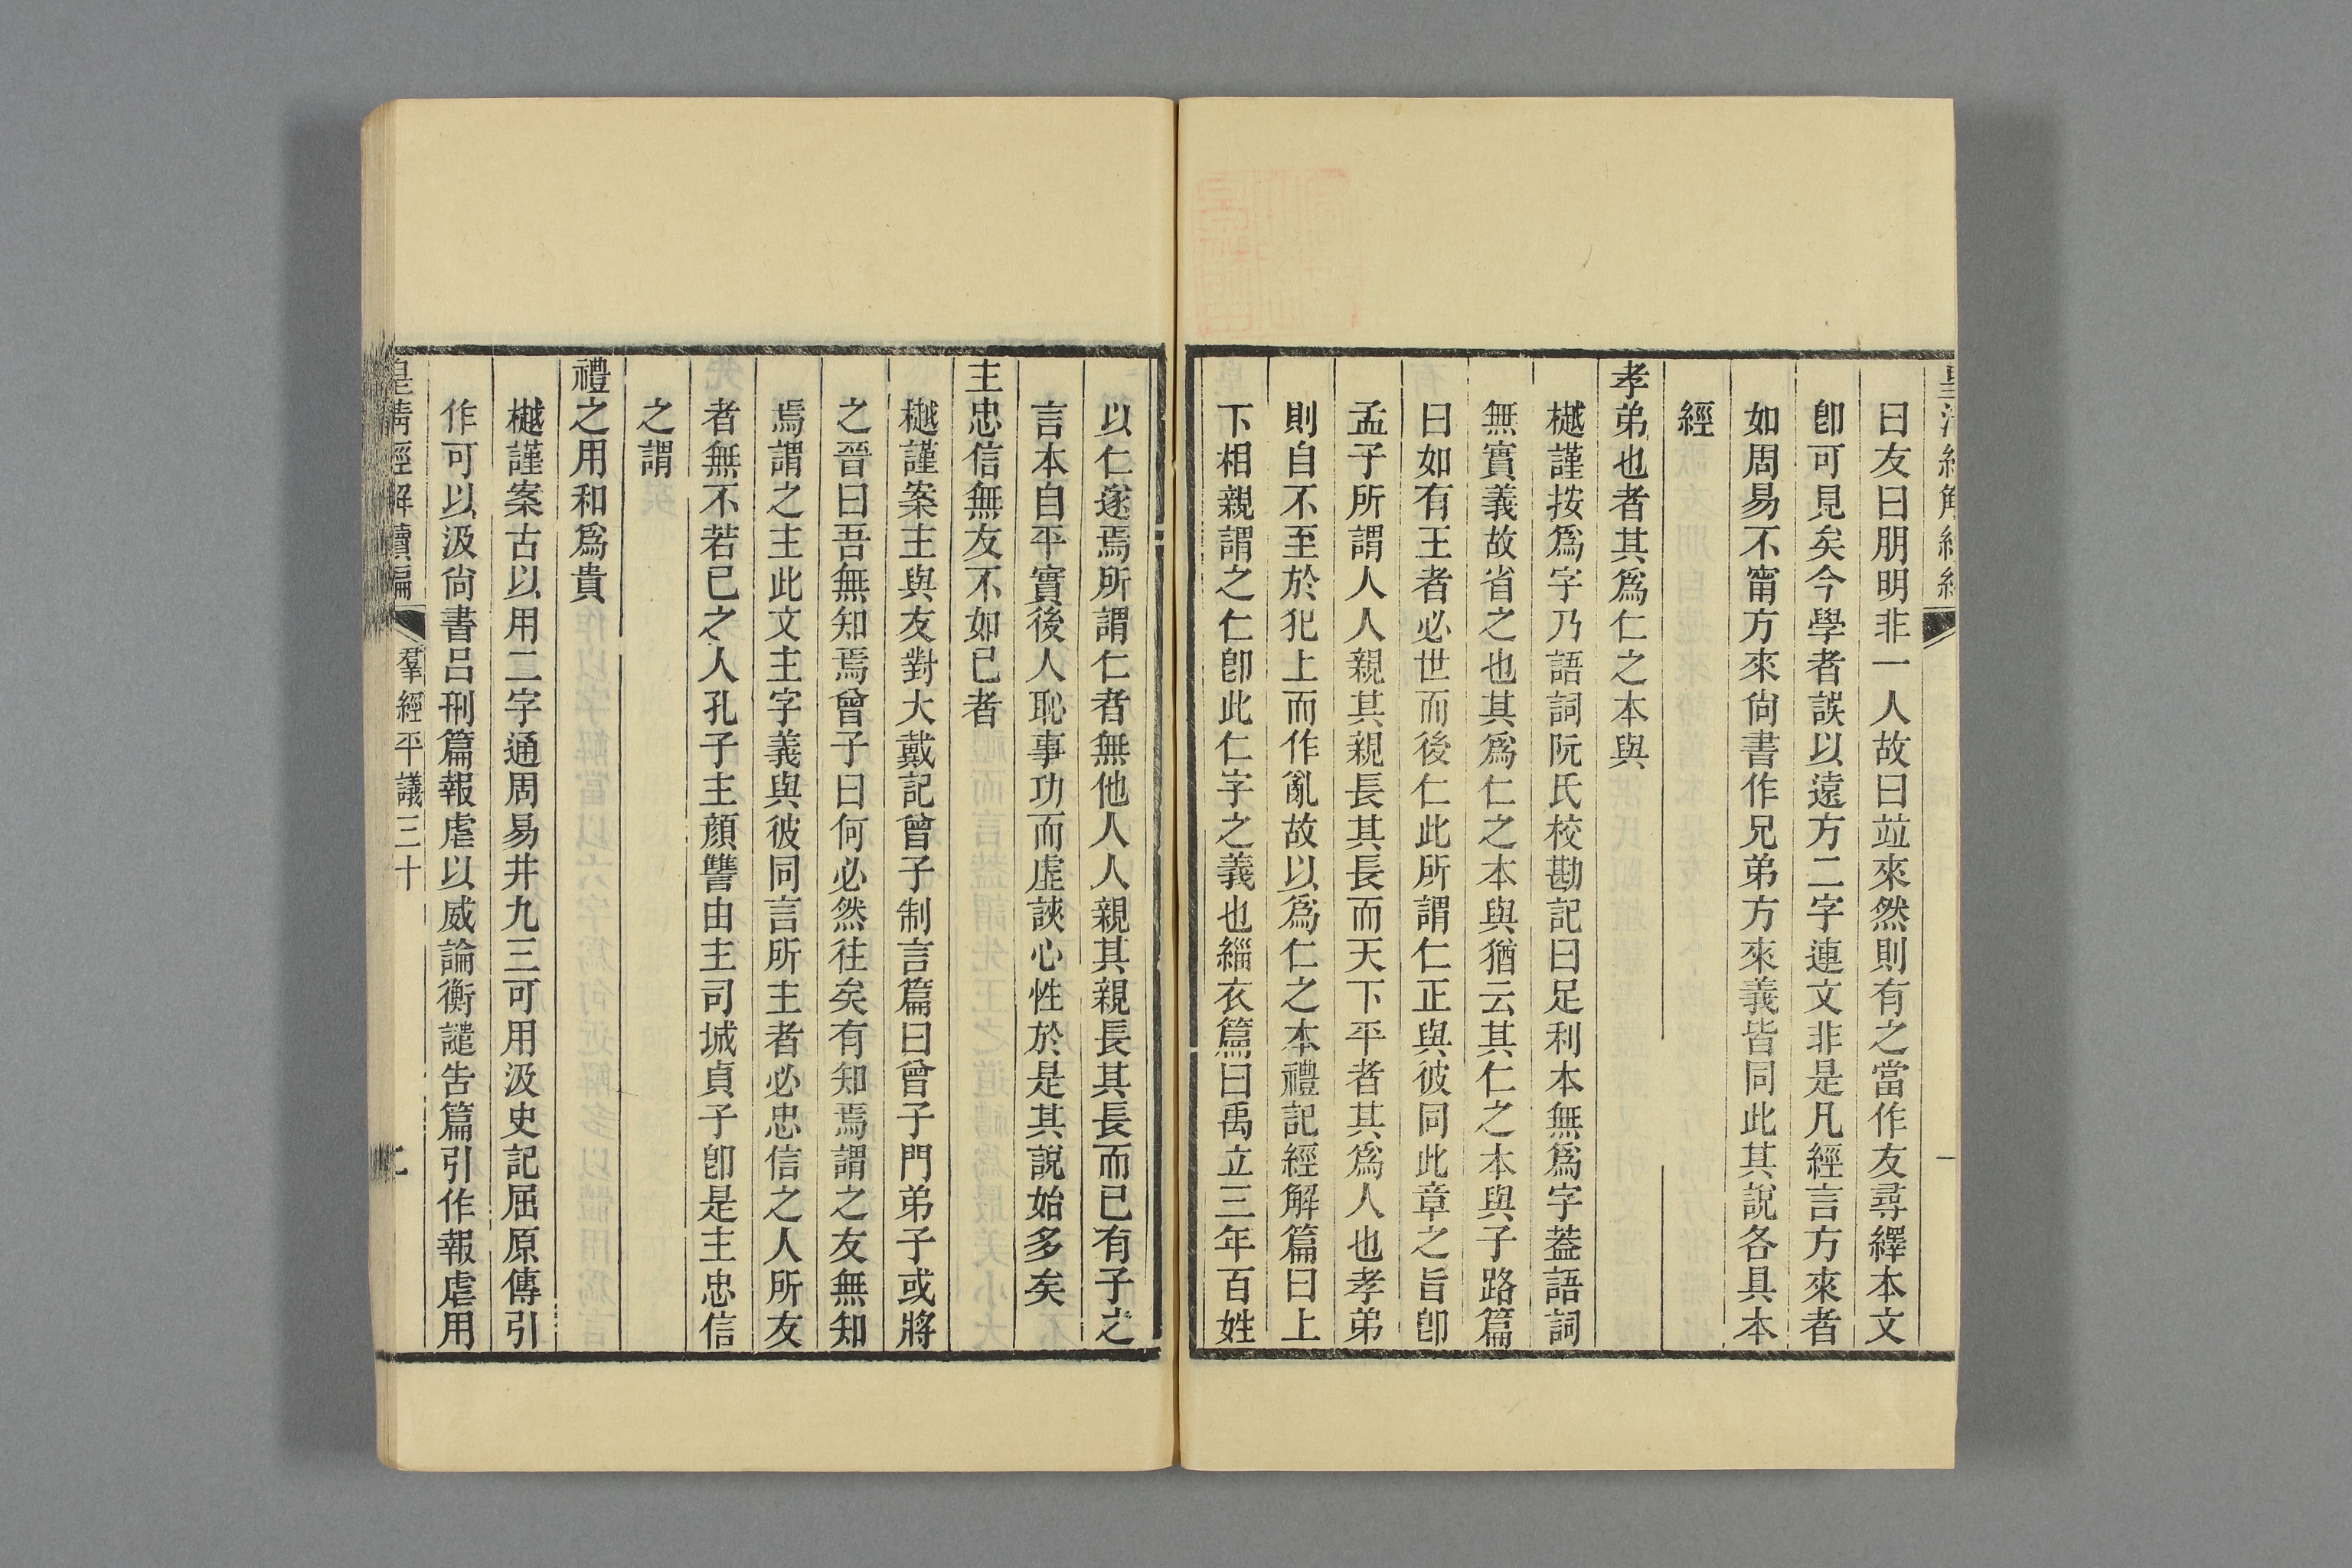 曰友曰朋明非一人故曰竝來然則有之當作友尋繹本文
卽可見矣今學者誤以遠方二字連文非是凡經言方來者
如周易不甯方來尙書作兄弟方來義皆同此其說各具本
經
孝弟也者其爲仁之本與
樾謹按爲字乃語詞阮氏校勘記曰足利本無爲字葢語詞
無實義故省之也其爲仁之本與猶云其仁之本與子路篇
曰如有王者必世而後仁此所謂仁正與彼同此章之旨卽
孟子所謂人人親其親長其長而天下平者其爲人也孝弟
則自不至於犯上而作亂故以爲仁之本禮記經解篇曰上
下相親謂之仁卽此仁字之義也緇衣篇曰禹立三年百姓
以仁遂焉所謂仁者無他人人親其親長其長而已有子之
言本自平實後人恥事功而虛談心性於是其說始多矣
主忠信無友不如已者
樾謹案主與友對大戴記曾子制言篇曰曾子門弟子或將
之晉曰吾無知焉曾子曰何必然往矣有知焉謂之友無知
焉謂之主此文主字義與彼同言所主者必忠信之人所友
者無不若已之人孔子主顏讐由主司城貞子卽是主忠信
之謂
禮之用和爲貴
樾謹案古以用二字通周易井九三可用汲史記屈原傳引
作可以汲尙書呂刑篇報虐以威論衡譴告篇引作報虐用
皇清經解續編 羣經平議三十 二